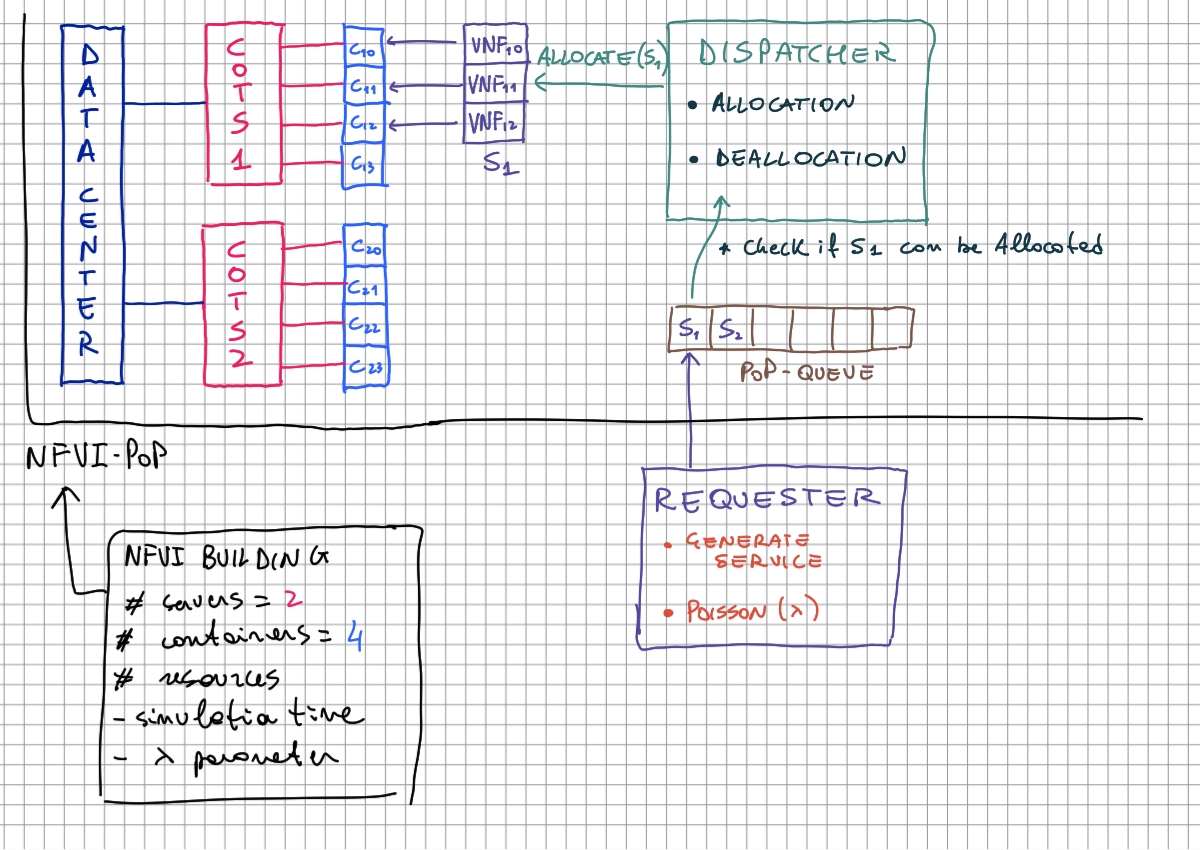 DATA CENTER
COTS 1
C10
C11
C12
C13
VNF10
VNF11
VNF12
S1
ALLOCATE(S1)
DISPATCHER
• ALLOCATION
• DEALLOCATION
* Check if S1 can be Allocated
COTS 2
C20
C21
C22
C23
S1 S2
POP-QUEUE
NFVI-PoP
REQUESTER
• GENERATE
SERVICE
• POISSON (λ)
NFVI BUILDING
# servers = 2
# containers = 4
# resources
- simulatio time
- λ parameter